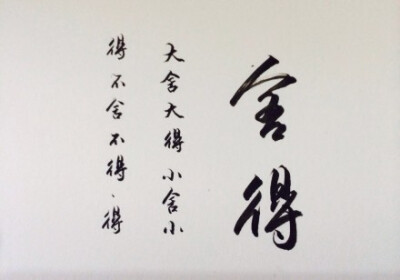 舍得
大舍大得小舍小
得不舍不得、得